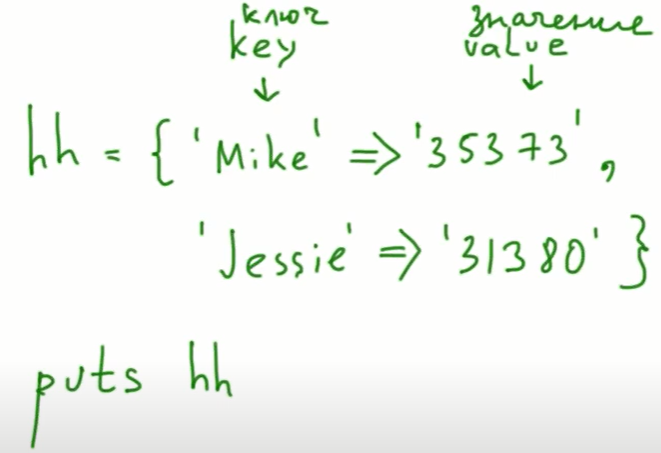 ключ значение
key value
↓ ↓
hh = { 'Mike' => '35373',
'Jessie' => '31380' }
puts hh